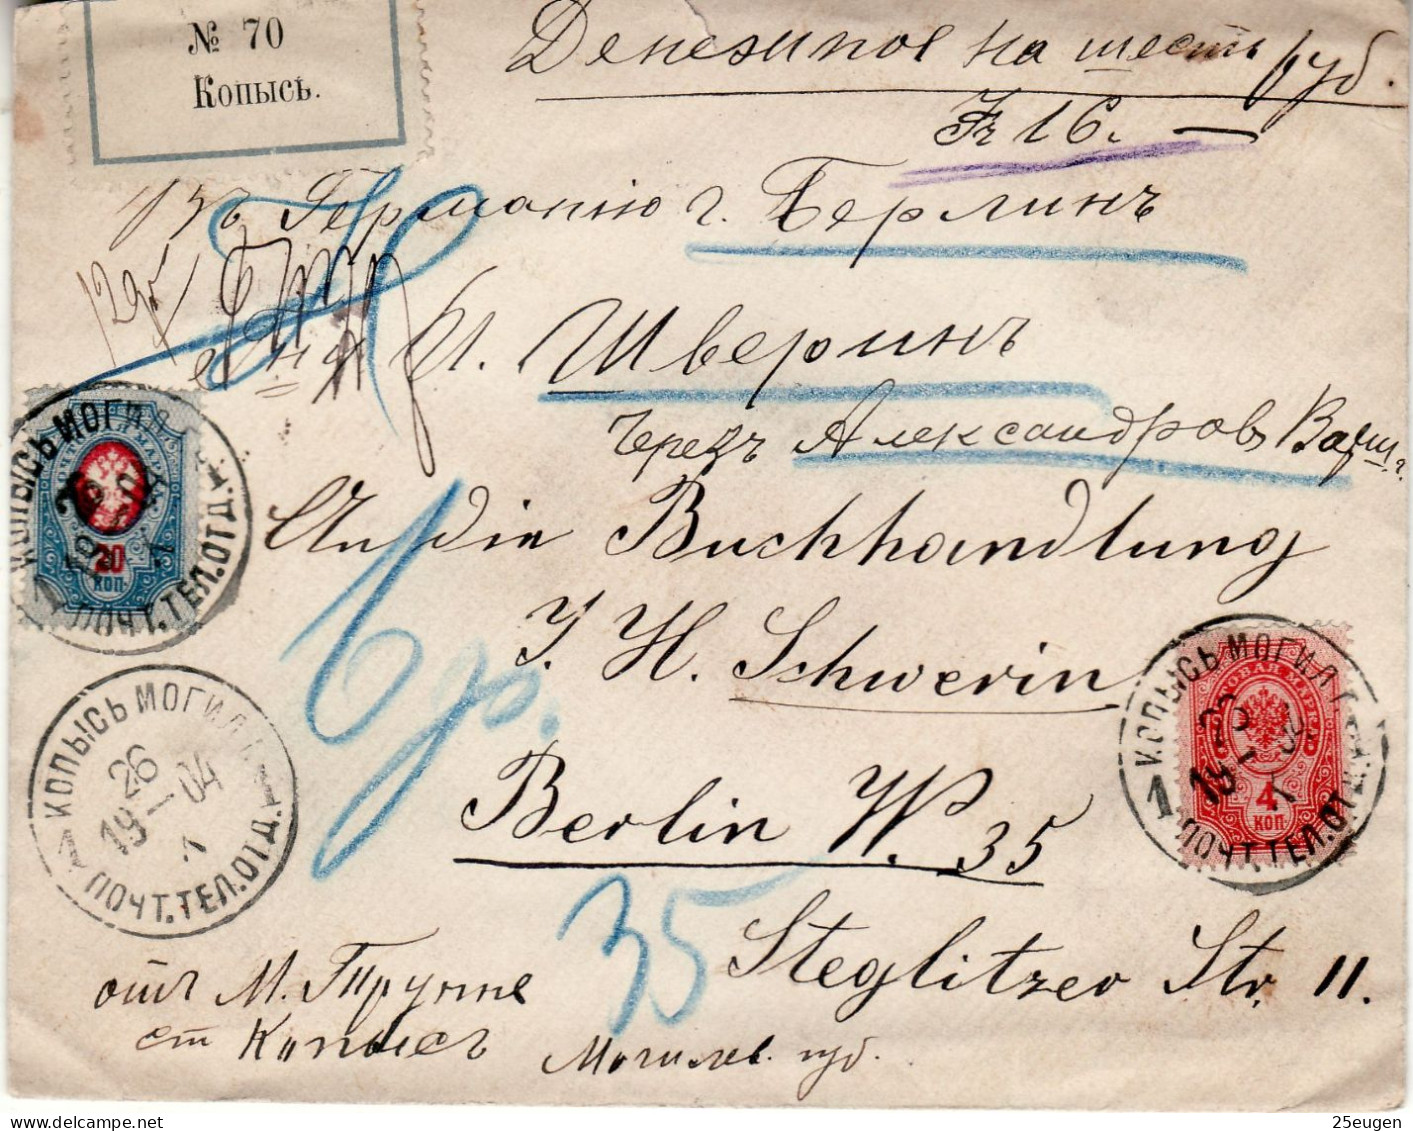 № 70
Копысь.
Денежное на шесть руб.
Fr 16. —
Въ Германію г. Берлинъ
И. Шверинъ
черезъ Александрово Варш. г.
An die Buchhandlung
J. H. Schwerin
Berlin W. 35
Steglitzer Str. 11.
6 р.
35
20
КОП.
4
КОП.
КОПЫСЬ МОГИЛ. Г.
26
19-I-04
ПОЧТ.ТЕЛ.ОТД.
1
КОПЫСЬ МОГИЛ. Г.
26
19-I-04
ПОЧТ.ТЕЛ.ОТД.
1
КОПЫСЬ МОГИЛ. Г.
26
19-I-04
ПОЧТ.ТЕЛ.ОТД.
1
отъ М.
ст Копысь Могилев. губ.
25eugen